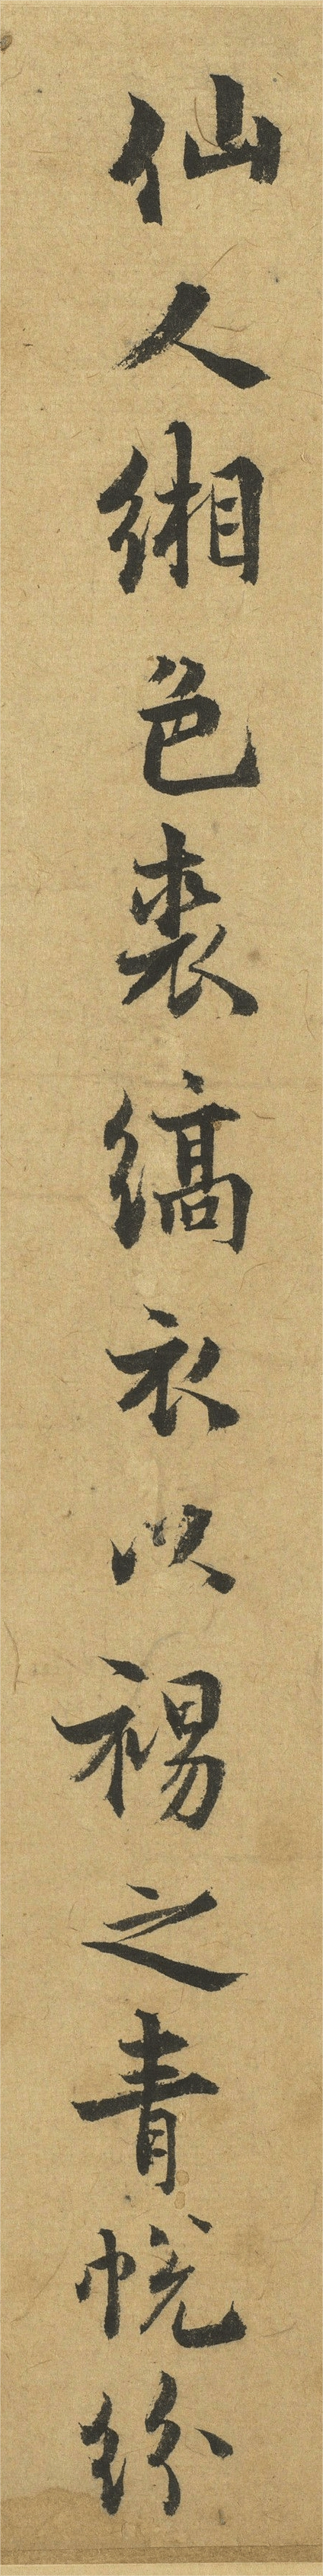 仙人緗色裘縞衣以裼之青帨紛